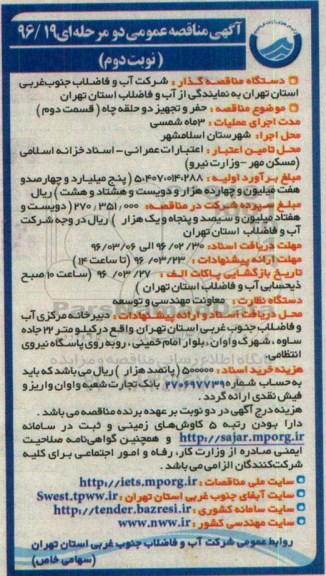 آگهی مناقصه عمومی دو مرحله‌ای ۹۶/۱۹
(نوبت دوم)
دستگاه مناقصه گذار : شرکت آب و فاضلاب جنوب‌غربی
استان تهران به نمایندگی از آب و فاضلاب استان تهران
موضوع مناقصه : حفر و تجهیز دو حلقه چاه ( قسمت دوم )
مدت اجرای عملیات : ۳ماه شمسی
محل اجرا: شهرستان اسلامشهر
محل تامین اعتبار : اعتبارات عمرانی - اسناد خزانه اسلامی
(مسکن مهر -وزارت نیرو)
مبلغ برآورد اولیه : ۵،۴۰۷،۰۱۴،۲۸۸ ( پنج میلیارد و چهارصدو
هفت میلیون و چهارده هزار و دویست و هشتاد و هشت ) ریال
مبلغ سپرده شرکت در مناقصه: ۲۷۰،۳۵۱،۰۰۰ (دویست و
هفتاد میلیون و سیصد و پنجاه و یک هزار ) ریال در وجه شرکت
آب و فاضلاب استان تهران
مهلت دریافت اسناد: ۹۶/۰۲/۳۰ الی ۹۶/۰۳/۰۶
مهلت ارائه پیشنهادات : ۹۶/۰۳/۲۳ (تا ساعت ۱۴)
تاریخ بازگشایی پاکات الف : ۹۶/۰۳/۲۷ (ساعت ۱۰ صبح
ذیحسابی آب و فاضلاب استان تهران )
دستگاه نظارت: معاونت مهندسی و توسعه
محل دریافت اسناد و ارائه پیشنهادات : دبیرخانه مرکزی آب
و فاضلاب جنوب غربی استان تهران واقع در کیلومتر ۲۲ جاده
ساوه ،شهرک واوان، بلوار امام خمینی ، روبه روی پاسگاه نیروی
انتظامی.
هزینه خرید اسناد : ۵۰۰۰۰۰ (پانصد هزار ) ریال می باشد که باید
به حساب شماره ۲۷۰۶۹۷۷۳۹ بانک تجارت شعبه واوان واریز و
فیش نقدی ارائه گردد .
هزینه درج آگهی در دو نوبت بر عهده برنده مناقصه می باشد .
دارا بودن رتبه ۵ کاوش‌های زمینی و ثبت در سامانه
http://sajar.mporg.ir و همچنین گواهی‌نامه صلاحیت
ایمنی صادره از وزارت کار، رفاه و امور اجتماعی برای کلیه
شرکت‌کنندگان الزامی می باشد .
سایت ملی مناقصات : http://iets.mporg.ir
سایت آبفای جنوب غربی استان تهران : Swest.tpww.ir
سایت سامانه کشوری : http://tender.bazresi.ir
سایت مهندسی کشور : www.nww.ir
روابط عمومی شرکت آب و فاضلاب جنوب غربی استان تهران
(سهامی خاص)